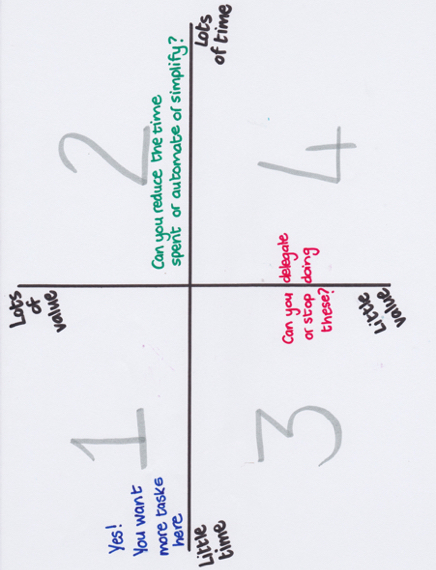 Lots
of
value
1
2
Yes!
You want
more tasks
here
Can you reduce the time
spent or automate or simplify?
Little
time
Lots
of time
3
4
Can you delegate
or stop doing
these?
Little
value